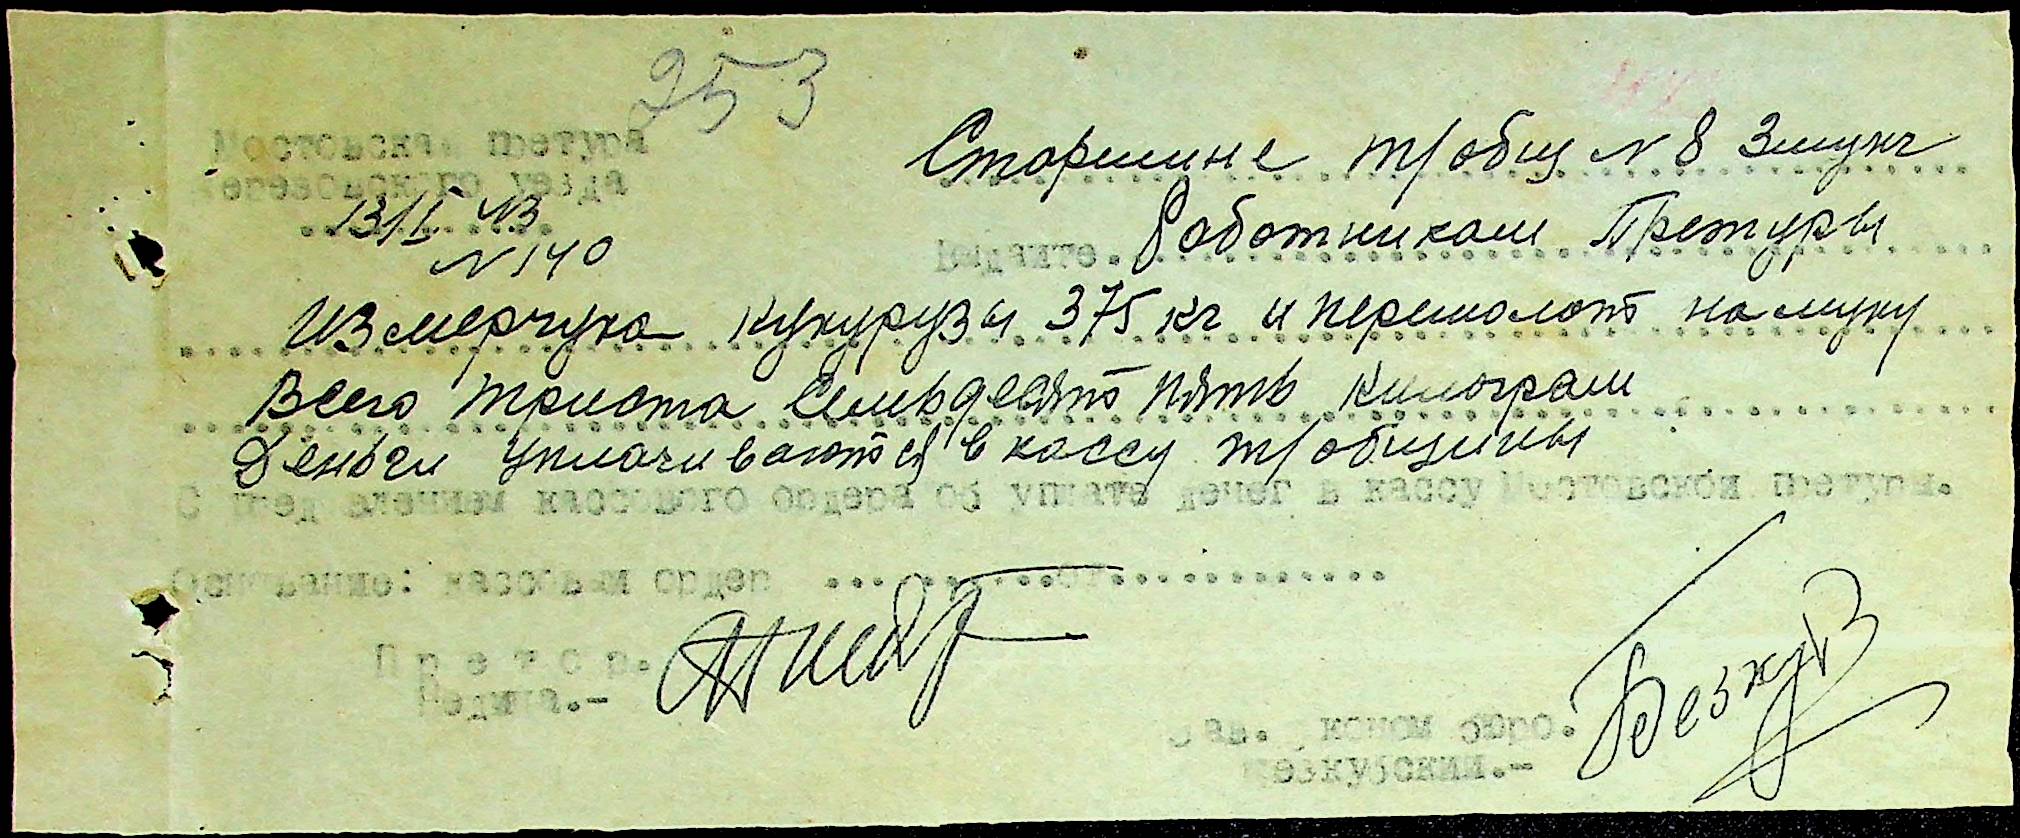 253
Мостовская претура
Березовского уезда
13/I 43
N 140
Старшине тр/общ N 8 Змунч
Выдайте Работникам Претуры
Из мерчука кукурузы 375 кг и перемолот на муку
Всего триста семьдесят пять килограм
Деньги уплачиваются в кассу тр/общины
С пред влением кассового ордера об уплате денег в кассу Мостовской претуры.
Основание: кассовый ордер от
Претор.
Редина.-
Зав. эконом бюро.
Безкубский.-